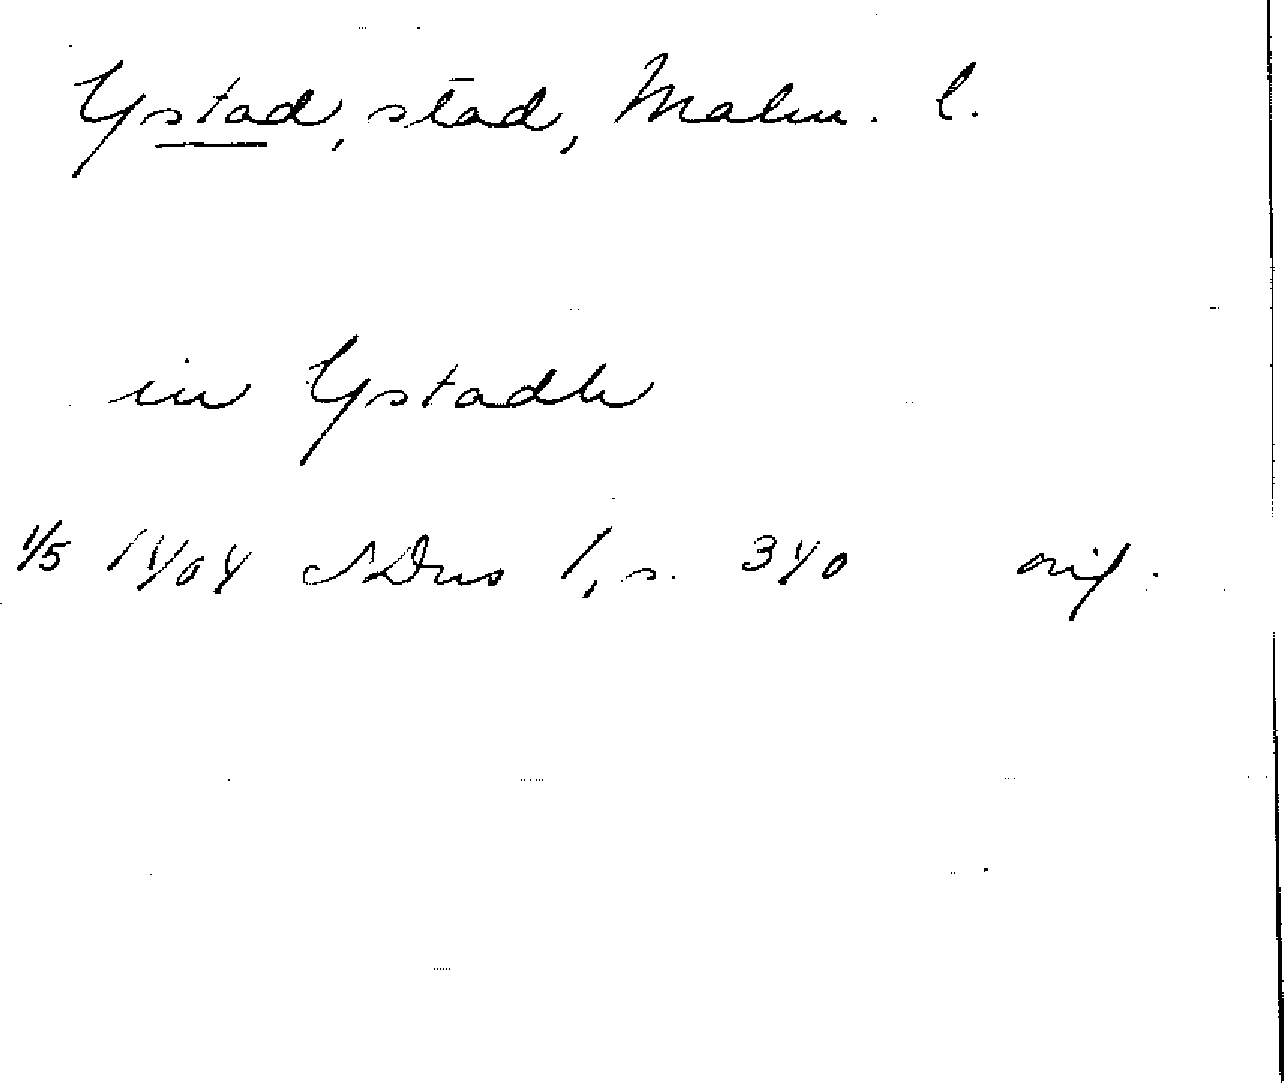 Ystad, stad, Malm. l.
in Ystadh
1/5 1404 SDns 1, s. 340 orig.